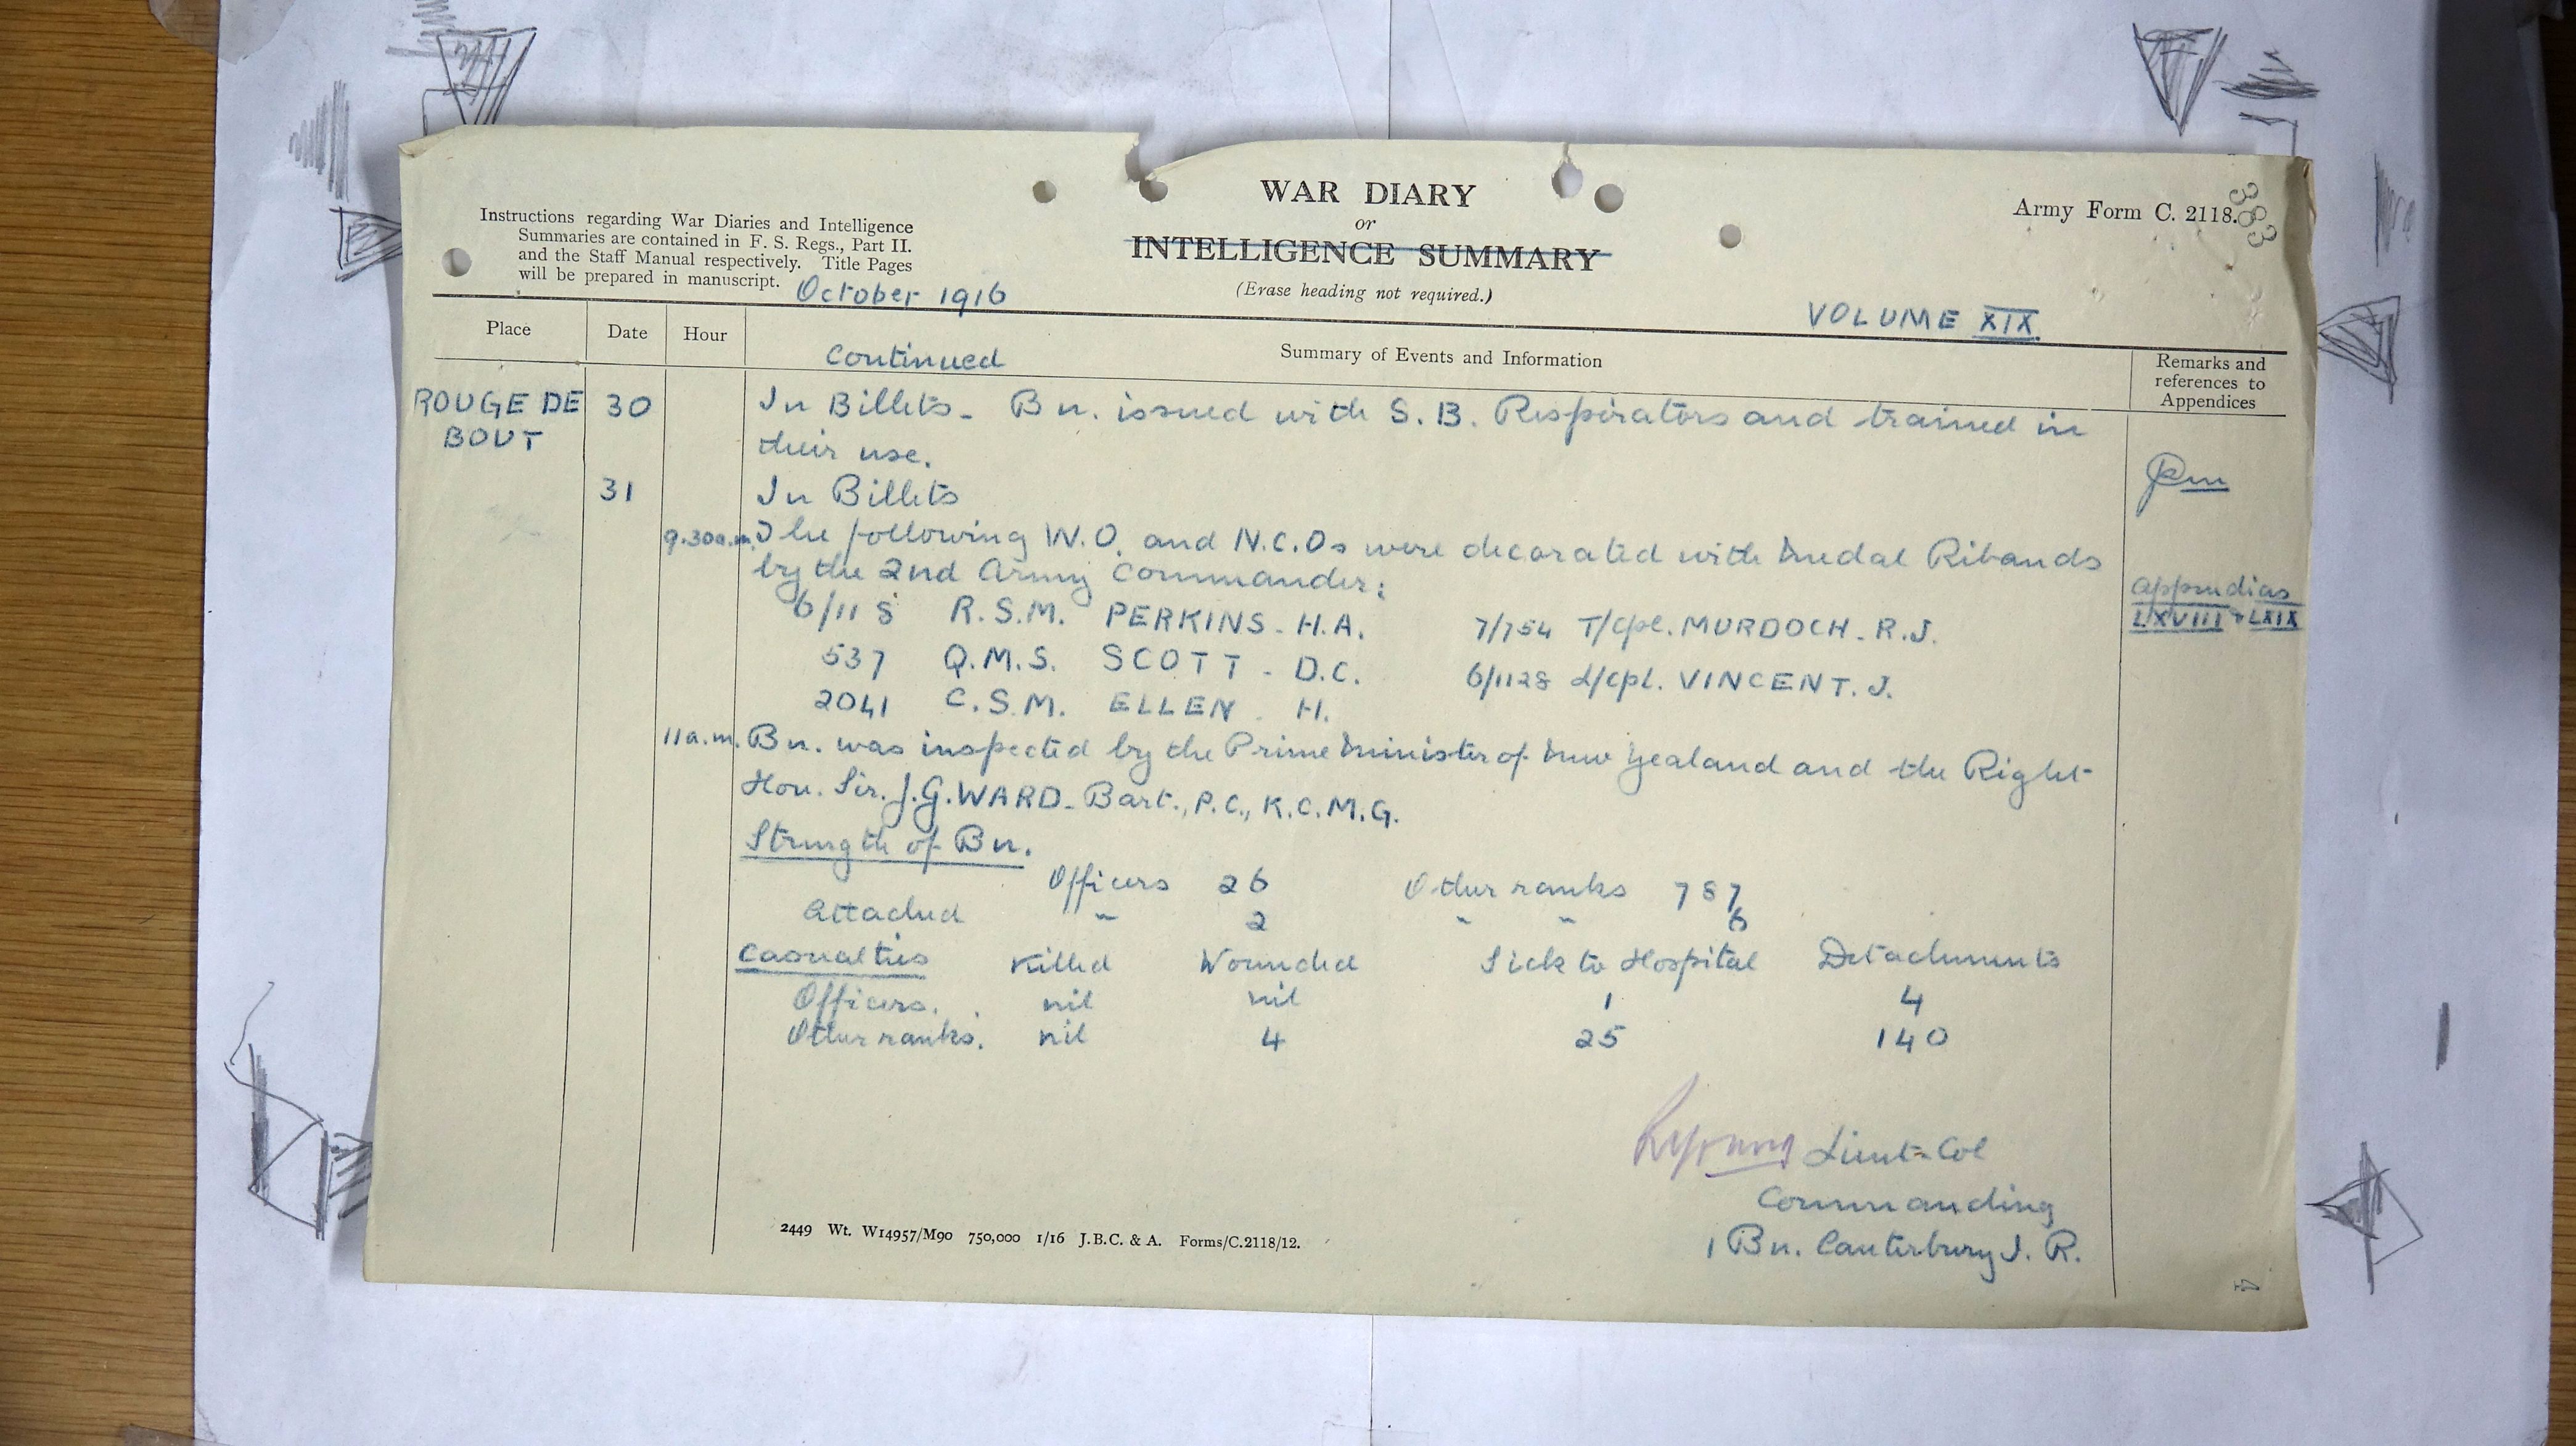 WAR DIARY
or
INTELLIGENCE SUMMARY
(Erase heading not required.)
Instructions regarding War Diaries and Intelligence
Summaries are contained in F. S. Regs., Part II.
and the Staff Manual respectively. Title Pages
will be prepared in manuscript.
October 1916
Army Form C. 2118.
383
VOLUME XIX
Place
Date
Hour
Continued
Summary of Events and Information
Remarks and
references to
Appendices
ROUGE DE 30 In Billets - Bn. issued with S.B. Respirators and trained in
BOUT their use.
31 In Billets
9.30a.m. The following W.O. and N.C.Os were decorated with Medal Ribands
by the 2nd Army Commander:
Appendices
LXVIII + LXIX
6/118 R.S.M. PERKINS - H.A. 7/754 T/Cpl. MURDOCH - R.J.
537 Q.M.S. SCOTT - D.C. 6/1128 L/Cpl. VINCENT. J.
2041 C.S.M. ELLEN - H.
11a.m. Bn. was inspected by the Prime Minister of New Zealand and the Right
Hon. Sir. J.G. WARD - Bart., P.C., K.C.M.G.
Strength of Bn.
Officers 26 Other ranks 787
Attached " 2 " " 6
Casualties Killed Wounded Sick to Hospital Detachments
Officers. nil nil 1 4
Other ranks. nil 4 25 140
Lieut-Col
Commanding
1 Bn. Canterbury I. R.
2449 Wt. W14957/M90 750,000 1/16 J.B.C. & A. Forms/C.2118/12.